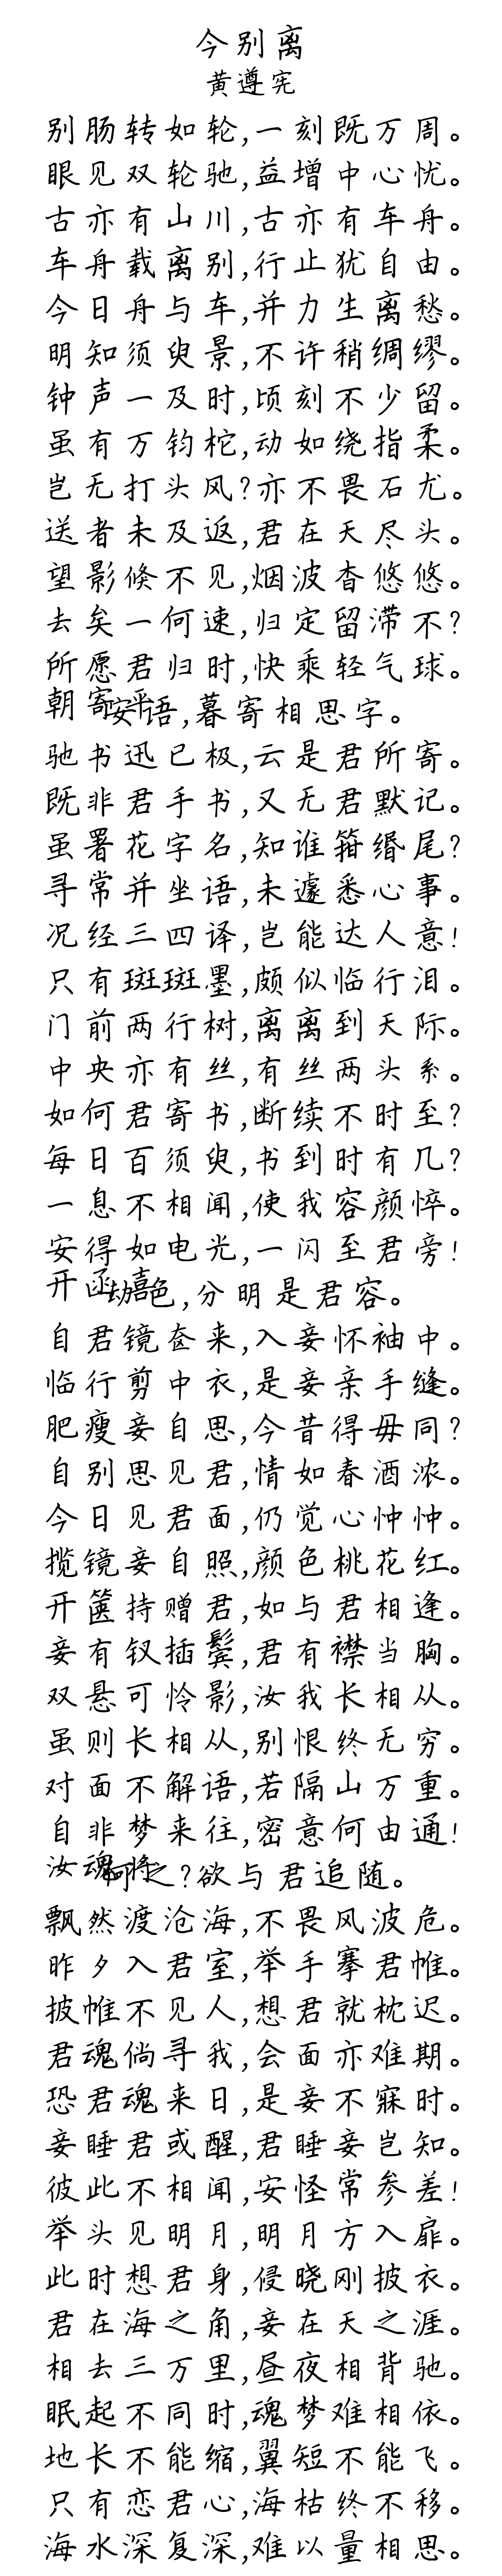 今别离
黄遵宪
别肠转如轮,一刻既万周。
眼见双轮驰,益增中心忧。
古亦有山川,古亦有车舟。
车舟载离别,行止犹自由。
今日舟与车,并力生离愁。
明知须臾景,不许稍绸缪。
钟声一及时,顷刻不少留。
虽有万钧柁,动如绕指柔。
岂无打头风?亦不畏石尤。
送者未及返,君在天尽头。
望影倏不见,烟波杳悠悠。
去矣一何速,归定留滞不?
所愿君归时,快乘轻气球。
朝寄平安语,暮寄相思字。
驰书迅已极,云是君所寄。
既非君手书,又无君默记。
虽署花字名,知谁箝缗尾?
寻常并坐语,未遽悉心事。
况经三四译,岂能达人意!
只有斑斑墨,颇似临行泪。
门前两行树,离离到天际。
中央亦有丝,有丝两头系。
如何君寄书,断续不时至?
每日百须臾,书到时有几?
一息不相闻,使我容颜悴。
安得如电光,一闪至君旁!
开函喜动色,分明是君容。
自君镜奁来,入妾怀袖中。
临行剪中衣,是妾亲手缝。
肥瘦妾自思,今昔得毋同?
自别思见君,情如春酒浓。
今日见君面,仍觉心忡忡。
揽镜妾自照,颜色桃花红。
开箧持赠君,如与君相逢。
妾有钗插鬓,君有襟当胸。
双悬可怜影,汝我长相从。
虽则长相从,别恨终无穷。
对面不解语,若隔山万重。
自非梦来往,密意何由通!
汝魂将何之?欲与君追随。
飘然渡沧海,不畏风波危。
昨夕入君室,举手搴君帷。
披帷不见人,想君就枕迟。
君魂倘寻我,会面亦难期。
恐君魂来日,是妾不寐时。
妾睡君或醒,君睡妾岂知。
彼此不相闻,安怪常参差!
举头见明月,明月方入扉。
此时想君身,侵晓刚披衣。
君在海之角,妾在天之涯。
相去三万里,昼夜相背驰。
眠起不同时,魂梦难相依。
地长不能缩,翼短不能飞。
只有恋君心,海枯终不移。
海水深复深,难以量相思。